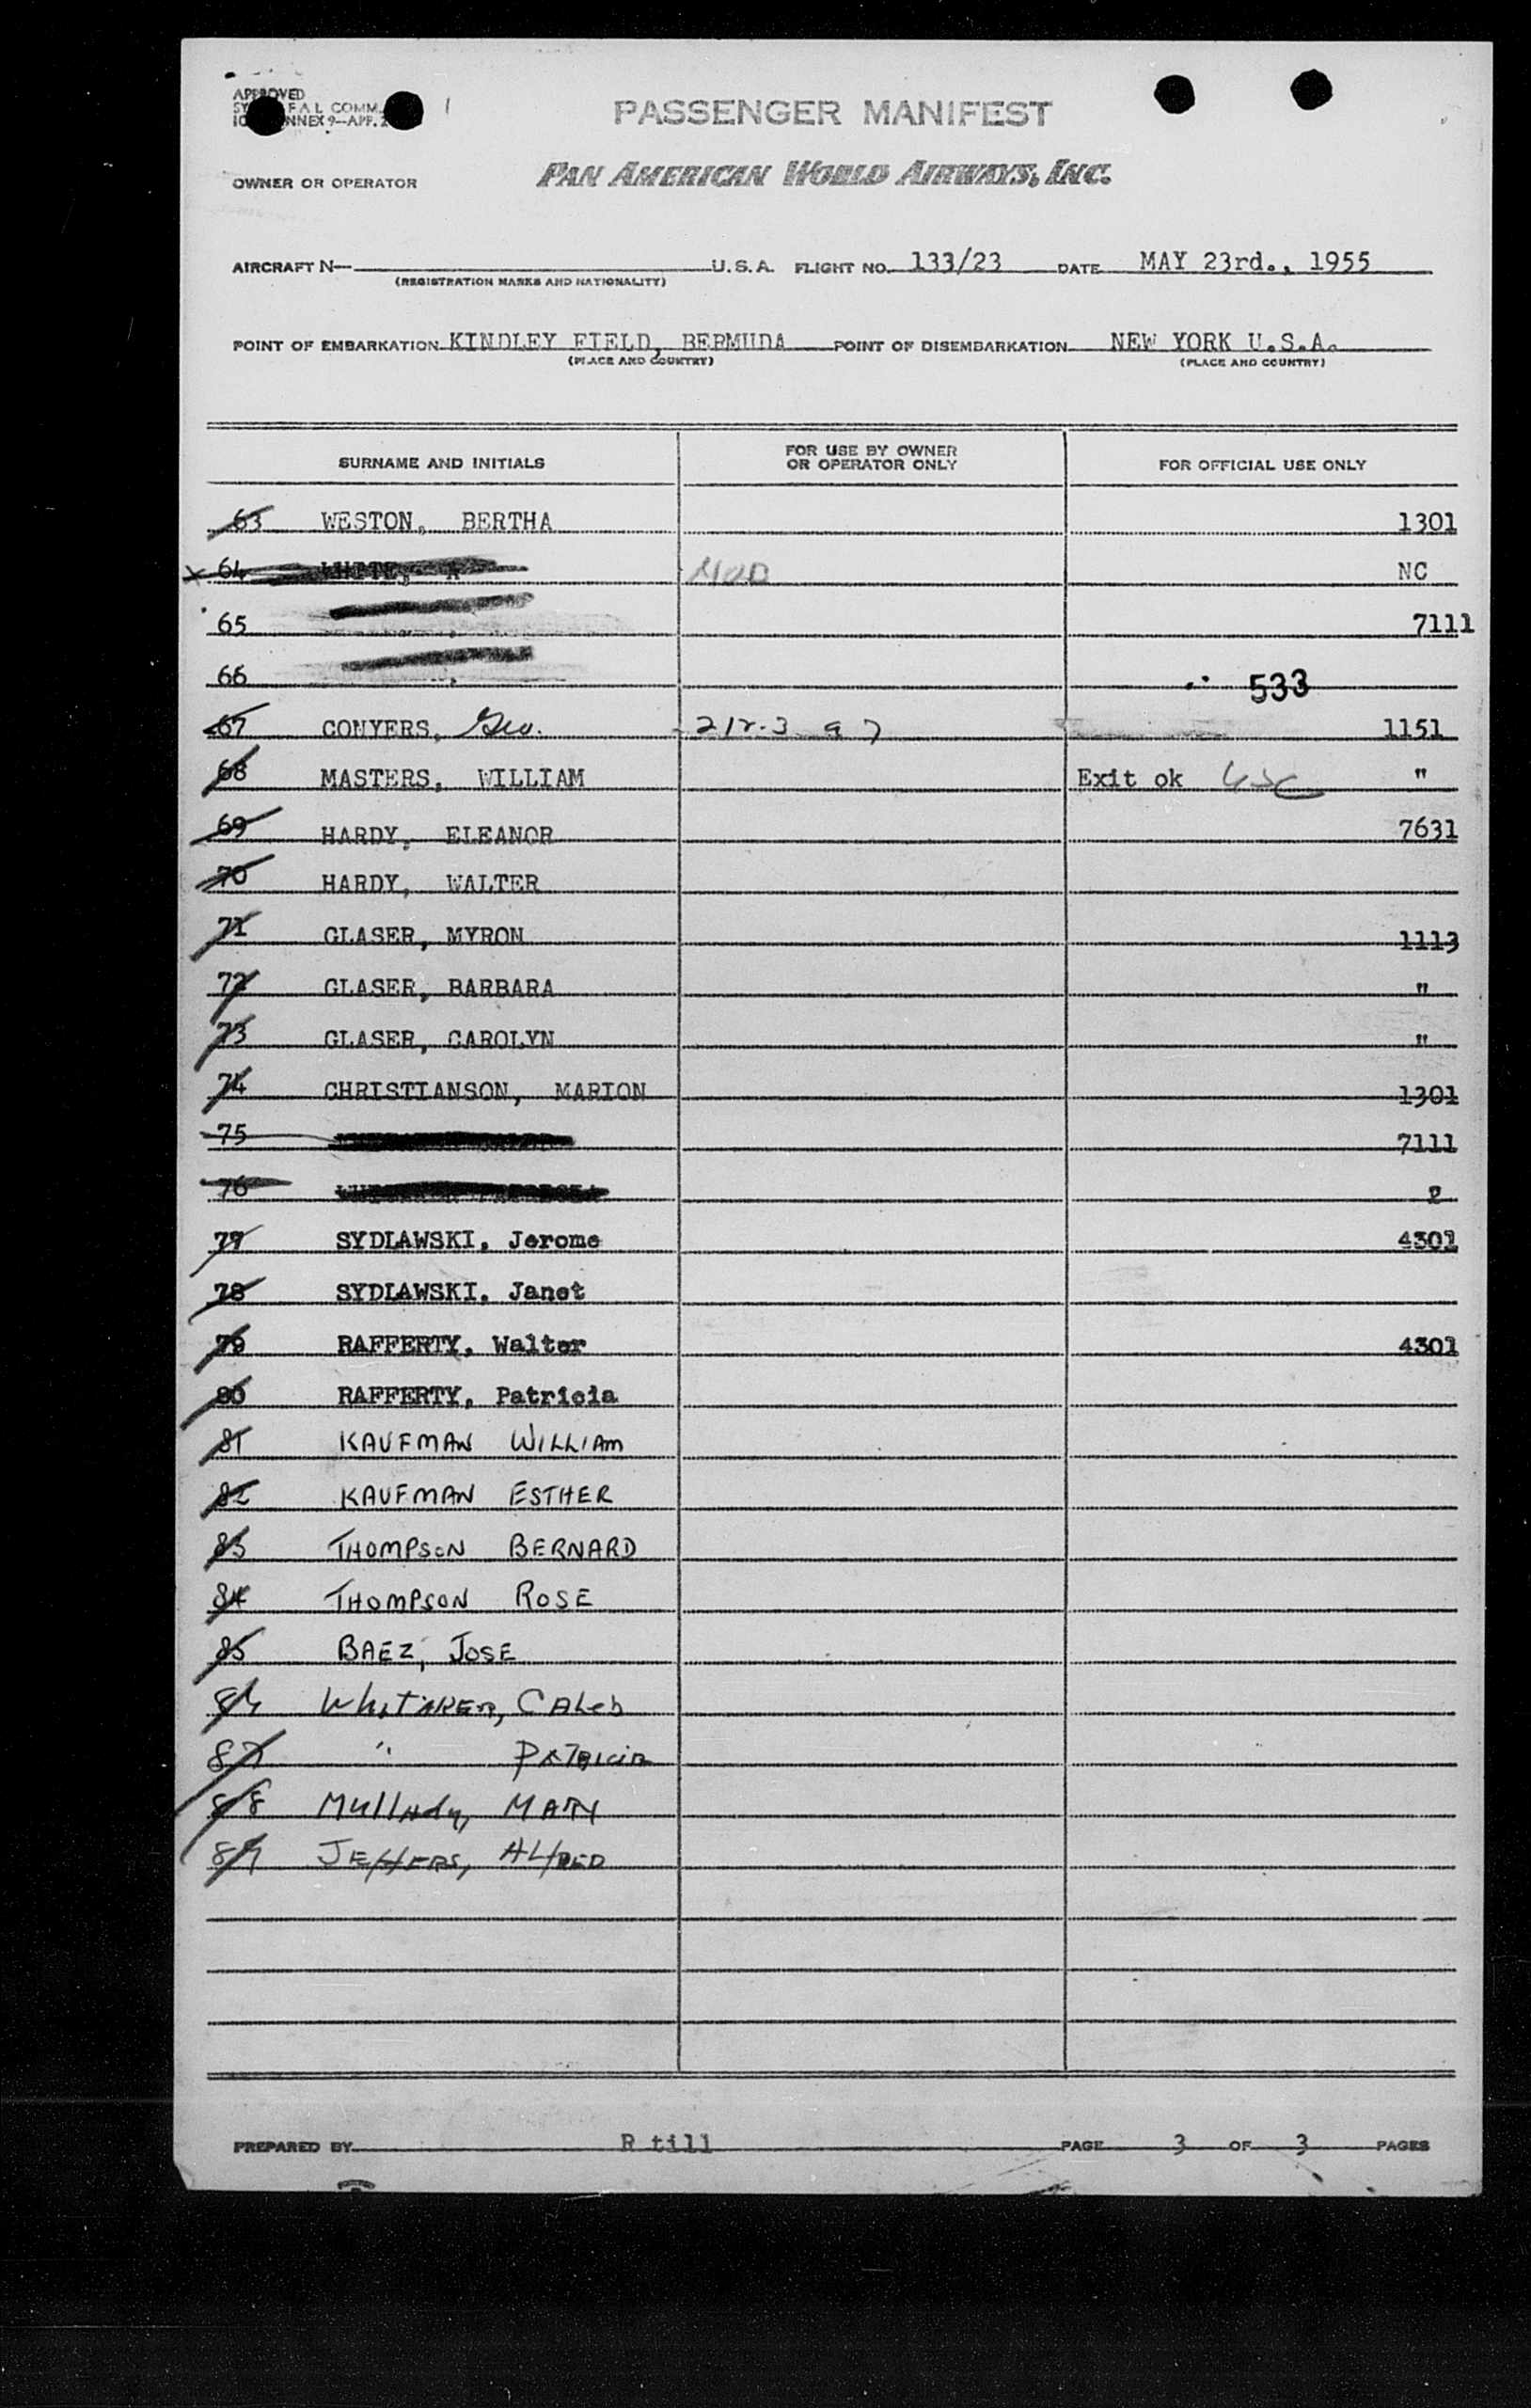 APPROVED
F A L COMM.
ANNEX 9—APP. 2
PASSENGER MANIFEST
OWNER OR OPERATOR PAN AMERICAN WORLD AIRWAYS, INC.
AIRCRAFT N— U.S.A. FLIGHT NO. 133/23 DATE MAY 23rd., 1955
(REGISTRATION MARKS AND NATIONALITY)
POINT OF EMBARKATION KINDLEY FIELD, BERMUDA POINT OF DISEMBARKATION NEW YORK U.S.A.
(PLACE AND COUNTRY) (PLACE AND COUNTRY)
SURNAME AND INITIALS FOR USE BY OWNER OR OPERATOR ONLY FOR OFFICIAL USE ONLY
63 WESTON, BERTHA 1301
64 WHITE, NC
65 7111
66 533
67 CONYERS, Geo. 1151
68 MASTERS, WILLIAM Exit ok "
69 HARDY, ELEANOR 7631
70 HARDY, WALTER
71 GLASER, MYRON 1113
72 GLASER, BARBARA "
73 GLASER, CAROLYN "
74 CHRISTIANSON, MARION 1301
75 7111
76
77 SYDLAWSKI, Jerome 4301
78 SYDLAWSKI, Janet
79 RAFFERTY, Walter 4301
80 RAFFERTY, Patricia
81 KAUFMAN WILLIAM
82 KAUFMAN ESTHER
83 THOMPSON BERNARD
84 THOMPSON ROSE
85 BAEZ, JOSE
86 WhitAKER, CALeb
87 " PATRICIA
88 MullAdy, MARY
89 JEffERS, ALfRED
PREPARED BY R till PAGE 3 OF 3 PAGES